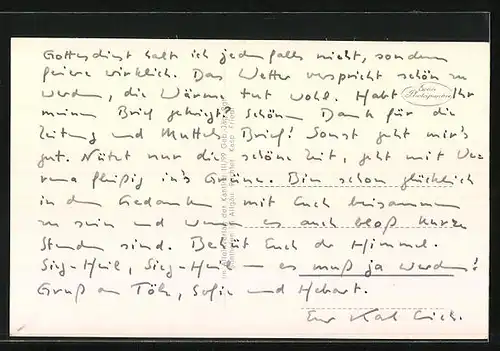 Gottesdienst halte ich jedenfalls nicht, sondern
feiere wirklich. Das Wetter verspricht schön zu
werden, die Wärme tut wohl. Habt Ihr
meinen Brief gekriegt? Schönen Dank für die
Zeitung und Mutters Brief! Sonst geht mir's
gut. Nützt nur die schöne Zeit, geht mit
fleißig in's Grüne. Bin schon glücklich
in den Gedanken mit Euch beisammen
zu sein und wenn es auch bloß kurze
Stunden sind. Behüt Euch der Himmel.
Sieg-Heil, Sieg-Heil — es muß ja werden!
Gruß an Sofie und
Euer Karl
Echte Photographie